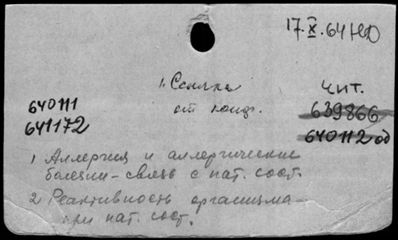 17.X.64
1. Ссылка
от конд.
чит.
640111
641172
639866
640112 од
1 Аллергия и аллергические
болезни - связь с пат. сост.
2 Реактивность организма -
при пат. сост.